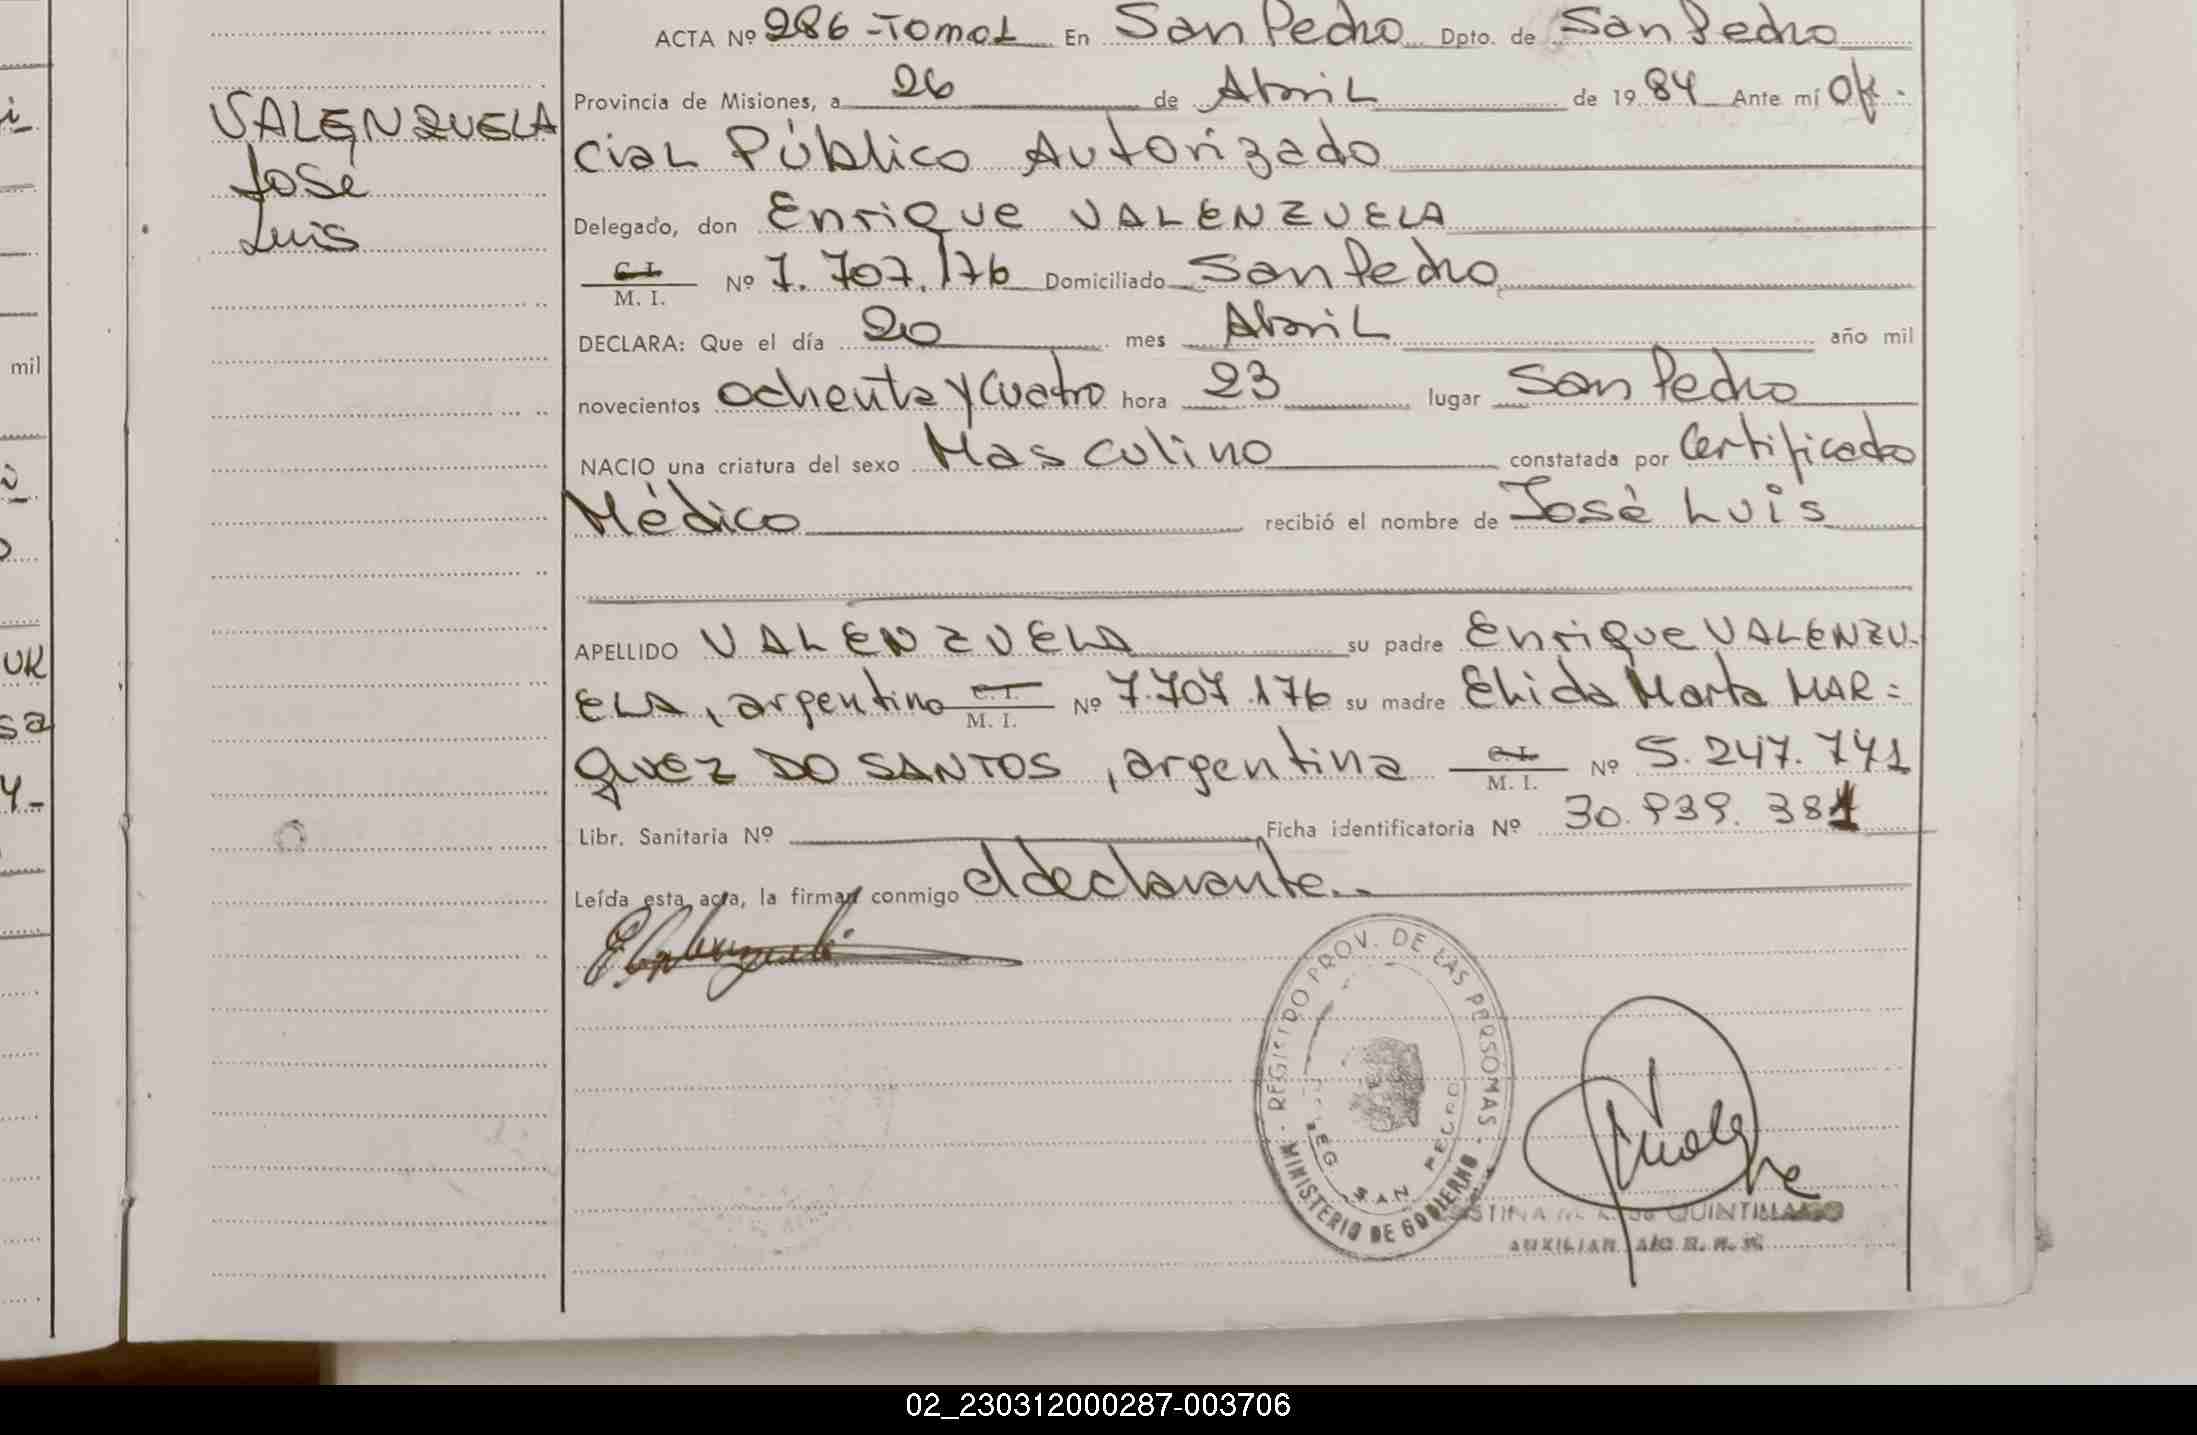 ACTA Nº 286 - TOMO 1 En San Pedro Dpto. de San Pedro
Provincia de Misiones, a 26 de Abril de 1984 Ante mí Ofi-
cial Público Autorizado
Delegado, don Enrique VALENZUELA
C. I. M. I. Nº 7.707.176 Domiciliado San Pedro
DECLARA: Que el día 20 mes Abril año mil
novecientos ochenta y cuatro hora 23 lugar San Pedro
NACIO una criatura del sexo Masculino constatada por Certificado
Médico recibió el nombre de José Luis
APELLIDO VALENZUELA su padre Enrique VALENZU-
ELA, argentino C. I. M. I. Nº 7.707.176 su madre Elida Marta MAR=
QUEZ DO SANTOS, argentina C. I. M. I. Nº 5.247.741
Libr. Sanitaria Nº Ficha identificatoria Nº 30.939.381
Leída esta acta, la firman conmigo el declarante..
VALENZUELA
José
Luis
mil
REGISTRO PROV. DE LAS PERSONAS
MINISTERIO DE GOBIERNO
SAN PEDRO
QUINTILLANO
AUXILIAR
02_230312000287-003706